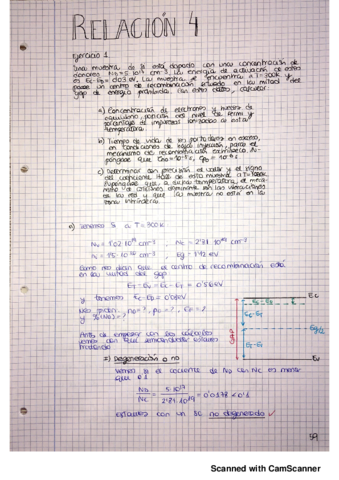 RELACIÓN 4
Ejercicio 1
Una muestra de Si está dopada con una concentración de
donores N_D = 5·10¹⁷ cm⁻³. La energía de activación de estos
es E_C-E_D = 0.03 eV. La muestra se encuentra a T=300K y
posee un centro de recombinación situado en la mitad del
gap de energía prohibida. Con estos datos, calcular
a) Concentración de electrones y huecos de
equilibrio, posición del nivel de Fermi y
porcentaje de impurezas ionizadas a esta
temperatura
b) Tiempo de vida de los portadores en exceso,
en condiciones de baja inyección, para el
mecanismo de recombinación
c) Determinar con precisión el valor y el signo
del coeficiente Hall de esta muestra a T=300K
que, a dicha temperatura, el
de dominante son las vibraciones
de la red y que la muestra no está en la
zona intrínseca
a) Tenemos Si a T = 300K
cm⁻³ N_C = 2'81·10¹⁹ cm⁻³
cm⁻³ E_g = 1'12 eV
Como nos dicen que el centro de recombinación está
en la mitad del gap
E_T - E_V = E_C - E_T = 0'56 eV
y tenemos E_C - E_D =
Nos piden, n_0 = ?, p_0 = ?, E_F = ?
y %(N_D) = ?
Antes de empezar con los cálculos
vemos con qué semiconductor estamos
tratando
I) Degeneración o no
Vemos si el cociente de N_D con N_C es menor
que 0'1
N_D / N_C = 5·10¹⁷ / 2'81·10¹⁹ = 0'0178 < 0'1
estamos con un SC no degenerado ✓
E_C
E_g/2
E_V
gap
59
Scanned with CamScanner